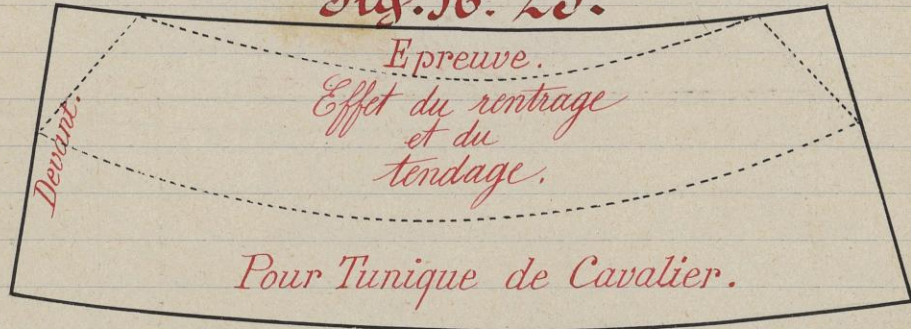 Fig. 16. 25.
Epreuve.
Effet du rentrage
et du
tendage.
Devant.
Pour Tunique de Cavalier.